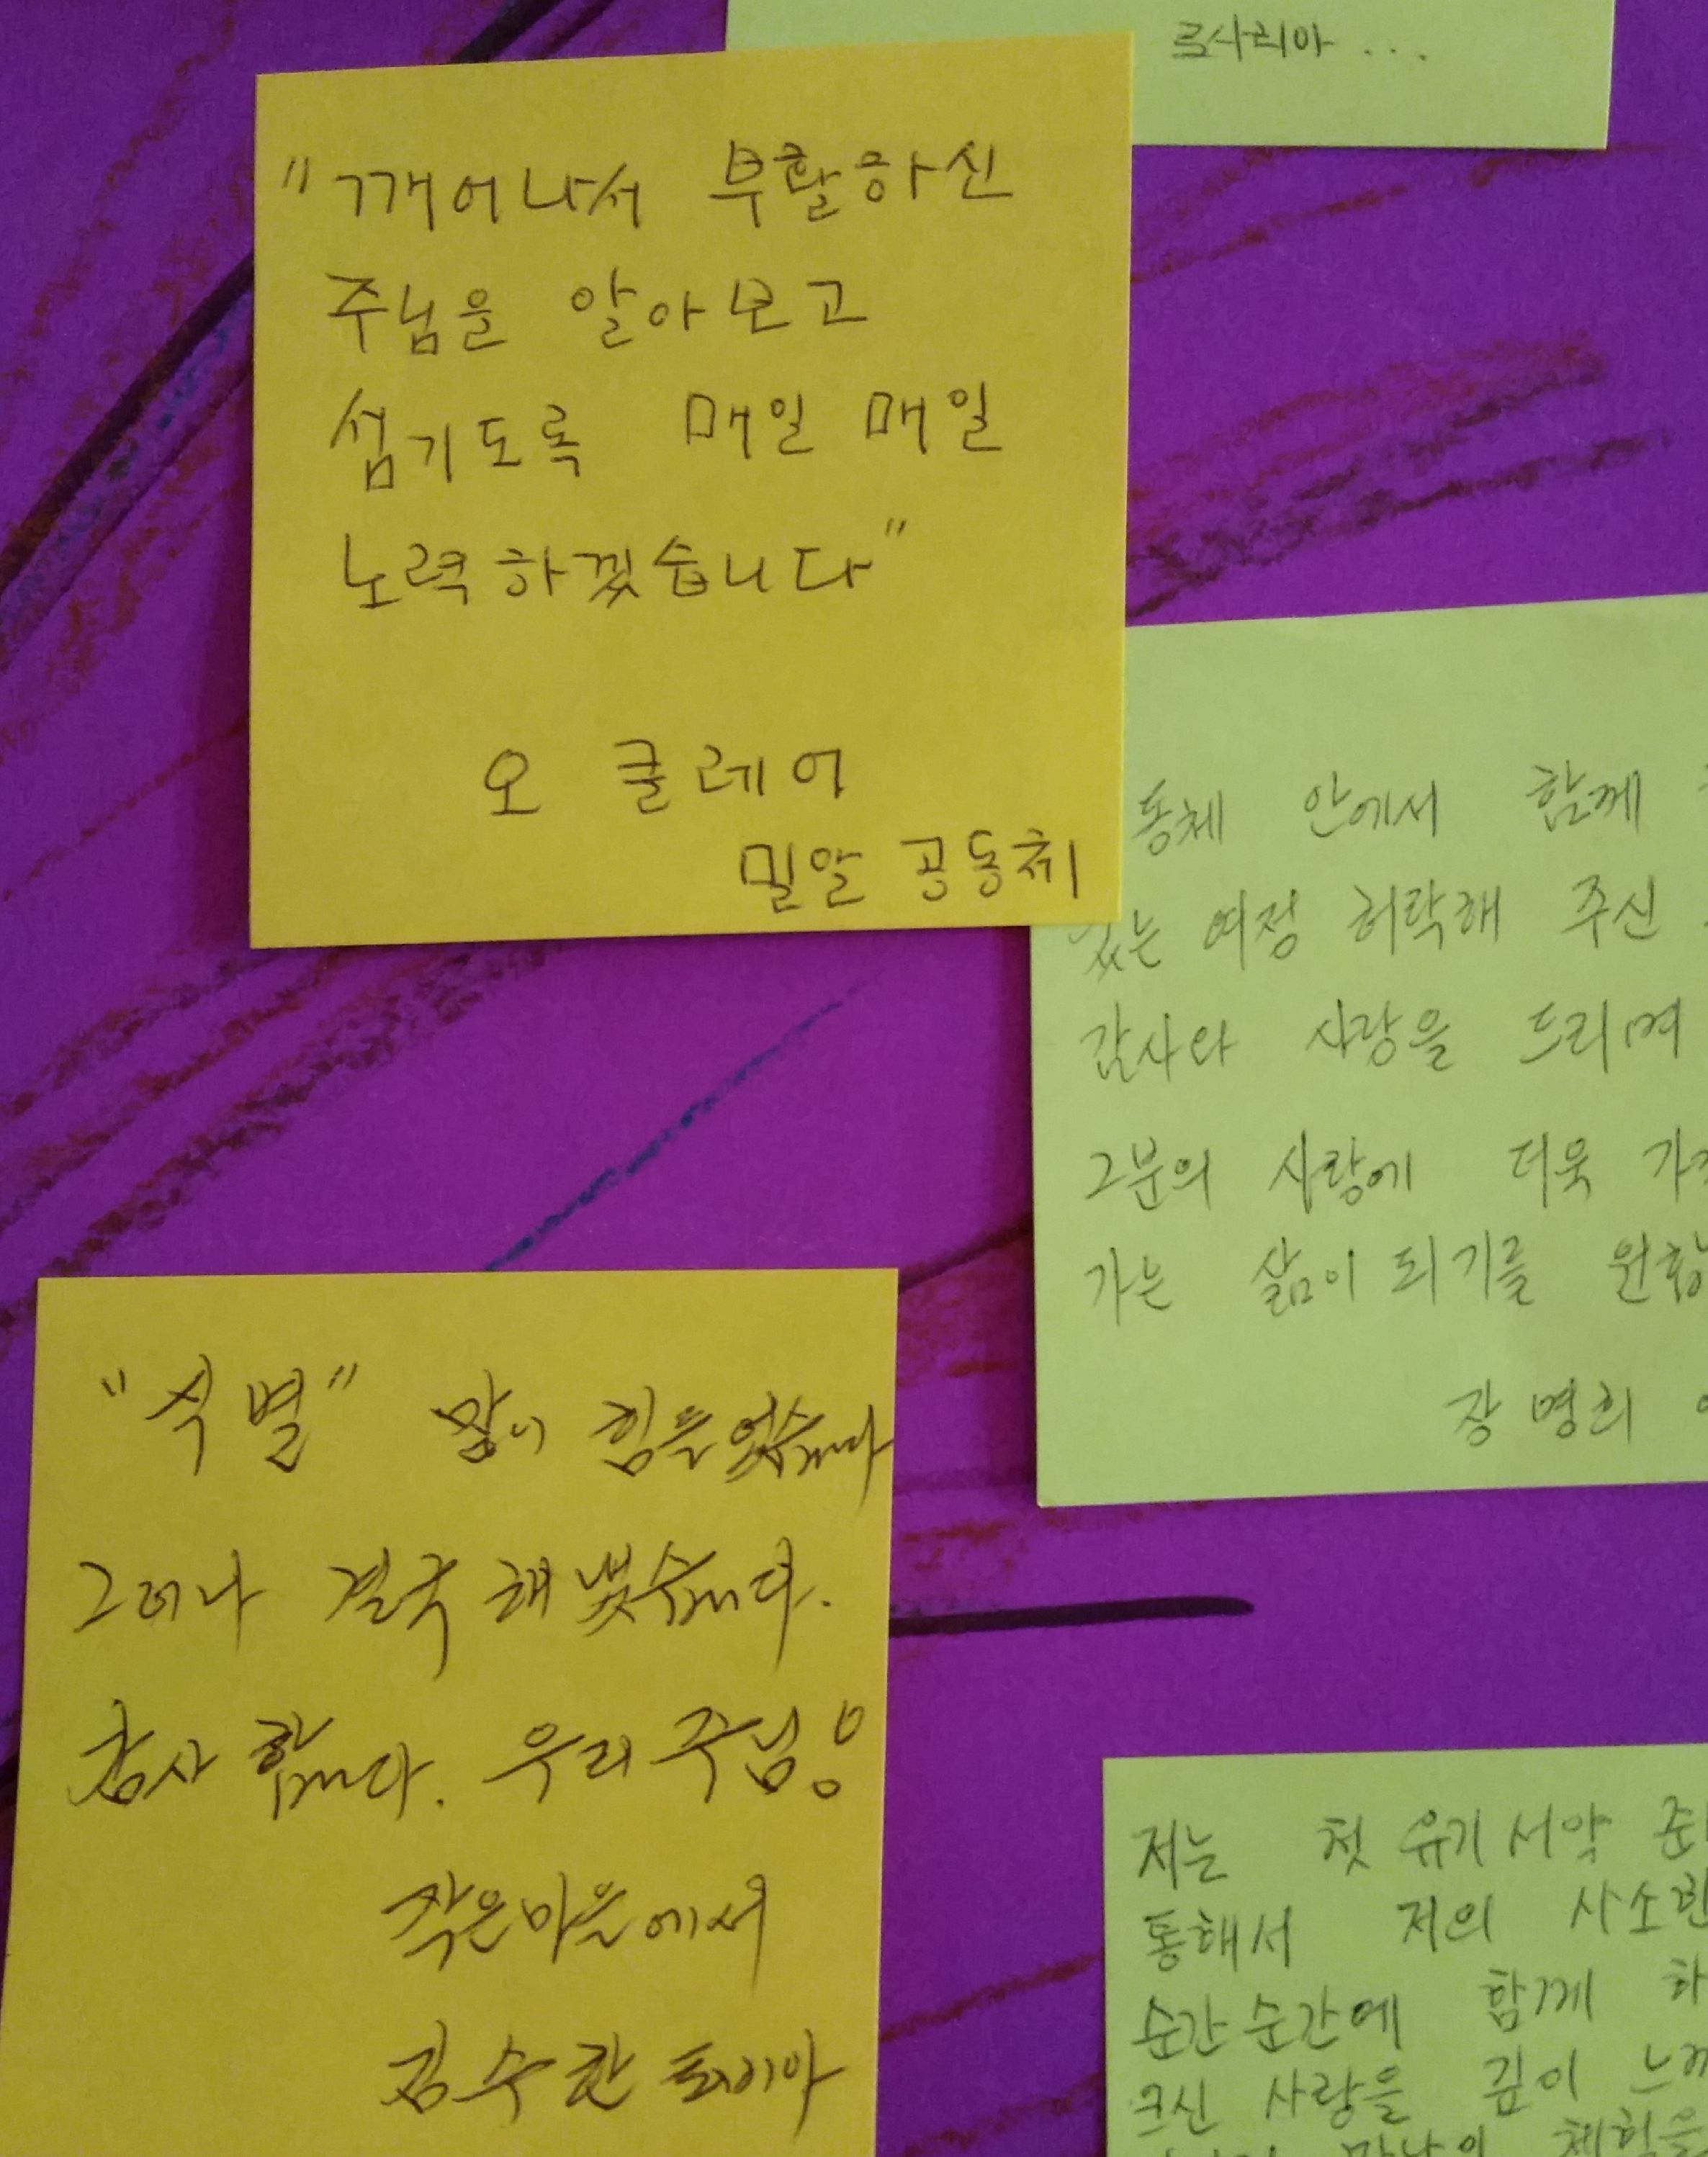 로사리아...
"깨어나서 부활하신
주님을 알아보고
섬기도록 매일 매일
노력하겠습니다"
오 클레어
밀알 공동체
동체 안에서 함께
있는 여정 허락해 주신
감사와 사랑을 드리며
그분의 사랑에 더욱
가는 삶이 되기를
장명희
"식별" 많이 힘들었습니다
그러나 결국 해냈습니다.
감사합니다. 우리 주님!
작은마을에서
김수산
저는 첫 유기서약
통해서 저의
순간순간에 함께
크신 사랑을 깊이
체험을